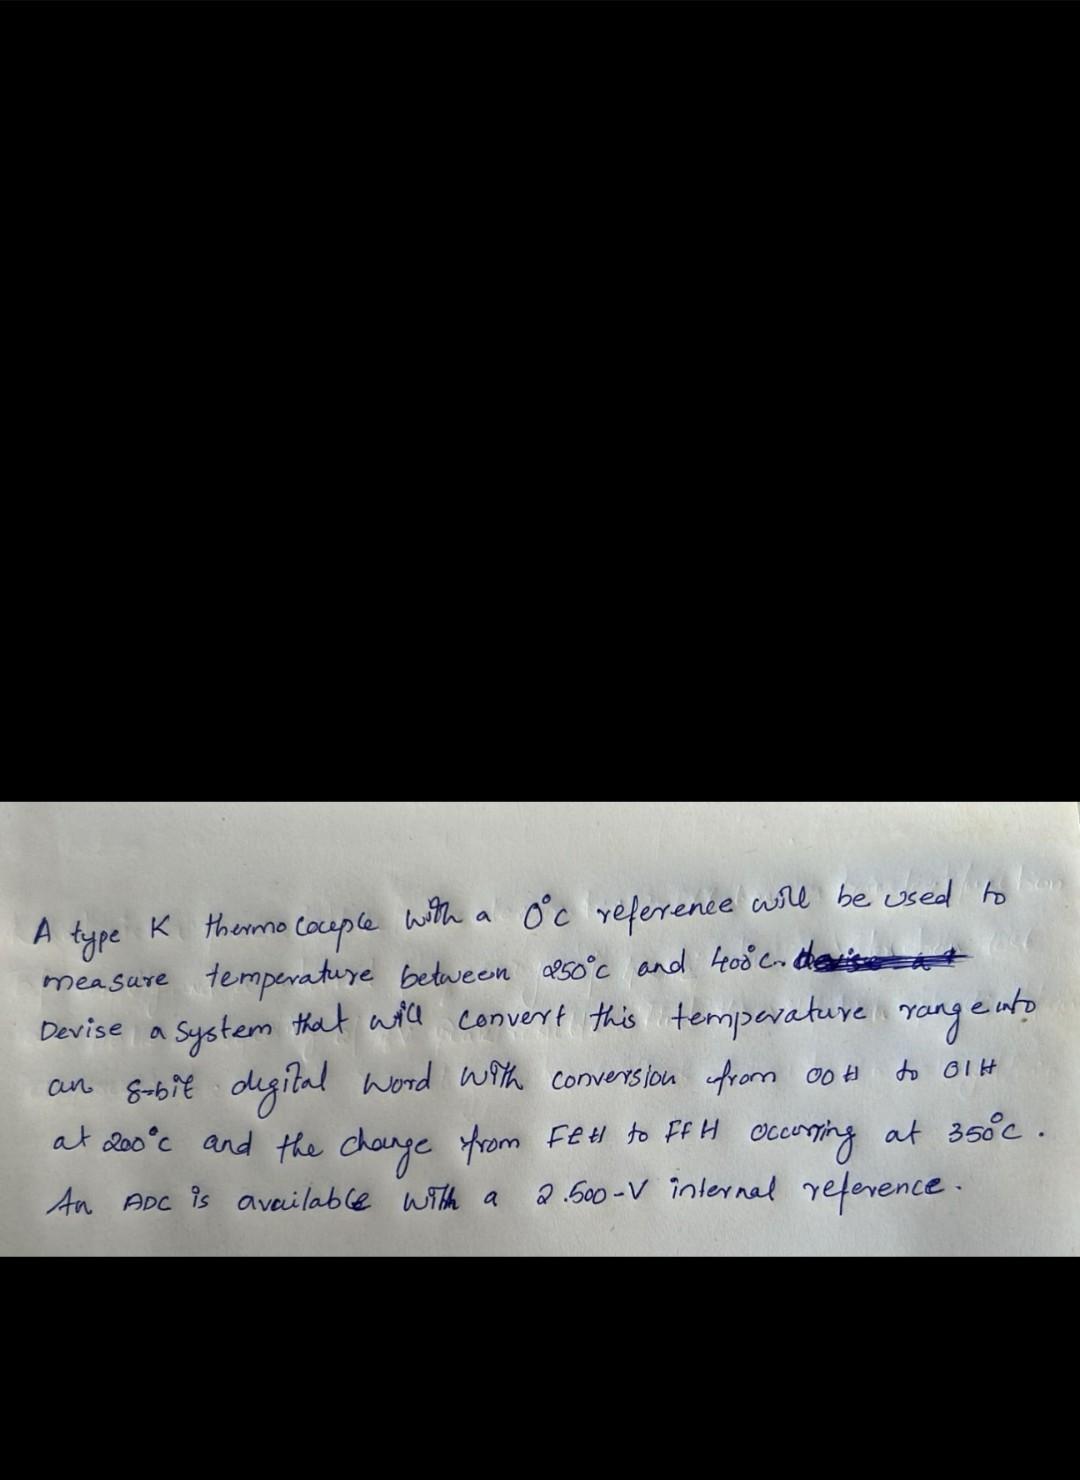 A type K thermocouple with a 0°C reference will be used to
measure temperature between 250°C and 400°C.
Devise a system that will convert this temperature range into
an 8-bit digital word with conversion from 00H to 01H
at 200°C and the change from FEH to FFH occurring at 350°C.
An ADC is available with a 2.500-V internal reference.